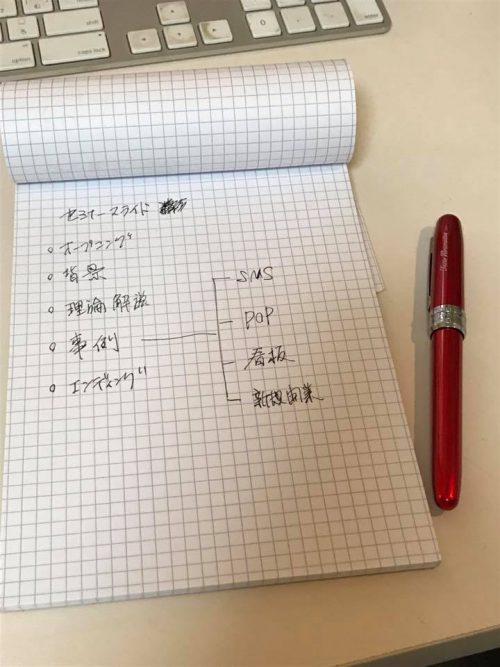 caps lock
enter
shift
セミナースライド
オープニング
背景
理論解説
事例
エンディング
SNS
POP
看板
新規開業